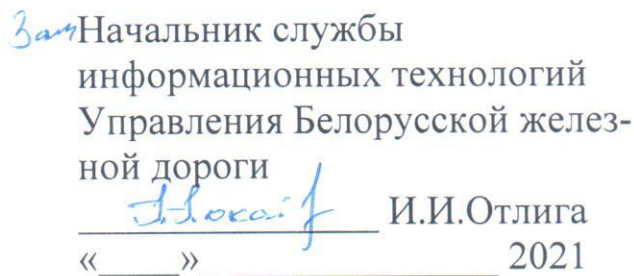 Зам Начальник службы
информационных технологий
Управления Белорусской желез-
ной дороги
И.И.Отлига
«____»________________ 2021